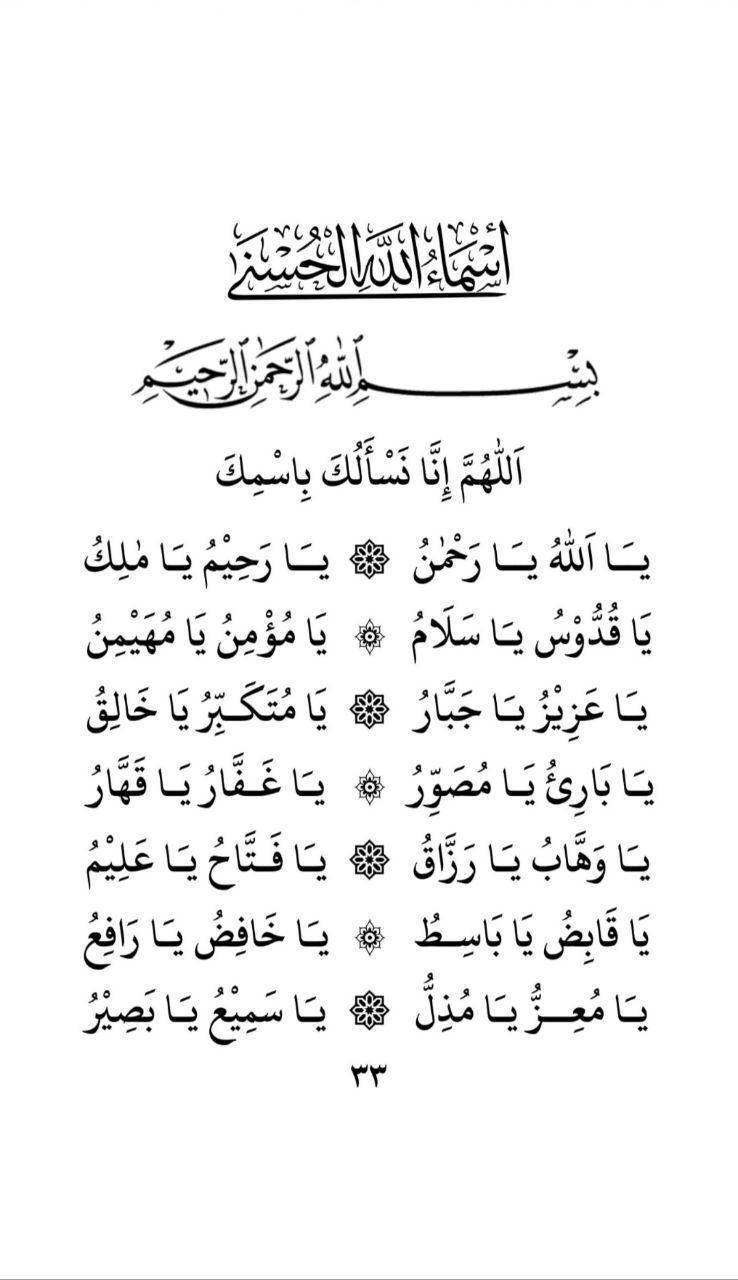 أَسْمَاءُ اللهِ الْحُسْنَى
بِسْمِ اللهِ الرَّحْمٰنِ الرَّحِيْمِ
اَللّٰهُمَّ إِنَّا نَسْأَلُكَ بِاسْمِكَ
يَا اَللّٰهُ يَا رَحْمٰنُ ۞ يَا رَحِيْمُ يَا مٰلِكُ
يَا قُدُّوْسُ يَا سَلَامُ ۞ يَا مُؤْمِنُ يَا مُهَيْمِنُ
يَا عَزِيْزُ يَا جَبَّارُ ۞ يَا مُتَكَبِّرُ يَا خَالِقُ
يَا بَارِئُ يَا مُصَوِّرُ ۞ يَا غَفَّارُ يَا قَهَّارُ
يَا وَهَّابُ يَا رَزَّاقُ ۞ يَا فَتَّاحُ يَا عَلِيْمُ
يَا قَابِضُ يَا بَاسِطُ ۞ يَا خَافِضُ يَا رَافِعُ
يَا مُعِزُّ يَا مُذِلُّ ۞ يَا سَمِيْعُ يَا بَصِيْرُ
٣٣